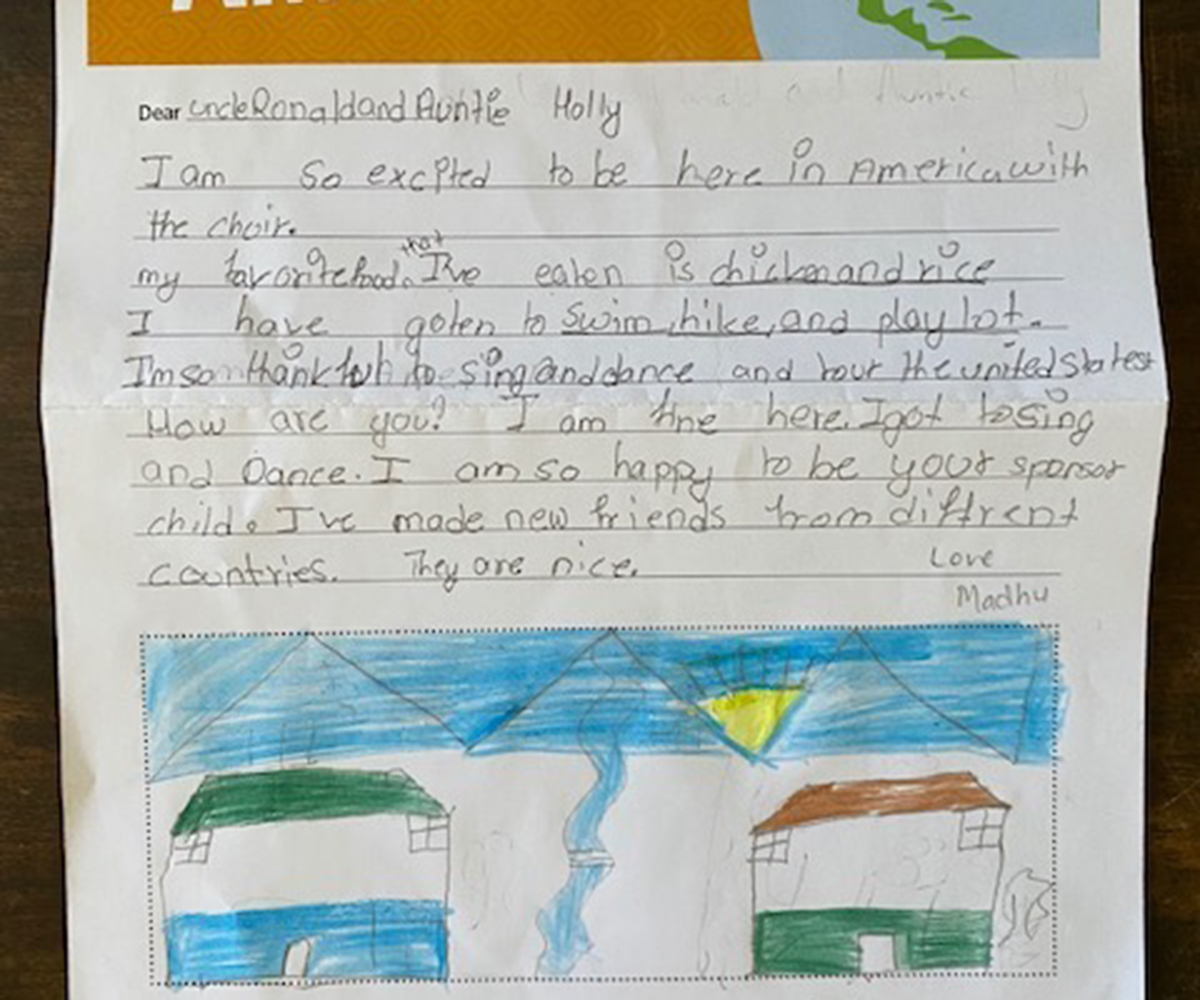 Dear uncle Ronald and Auntie Holly
I am so excited to be here in America with
the choir.
my favorite food that I've eaten is chicken and rice
I have goten to swim, hike, and play lot.
I'm so thankful to sing and dance and tour the united States
How are you? I am fine here. I got to sing
and Dance. I am so happy to be your sponsor
child. I've made new friends from diffrent
countries. They are nice.
Love
Madhu